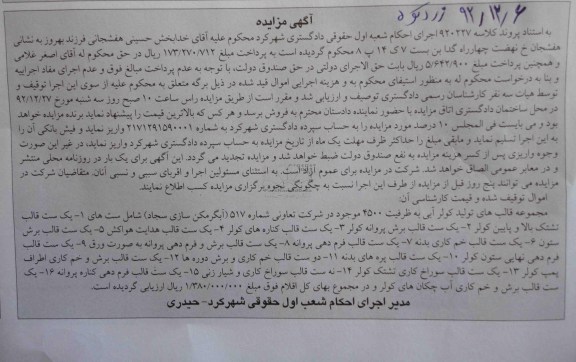 ۹۲/۱۲/۶
آگهی مزایده
به استناد پرونده کلاسه ۹۲۰۲۲۷ اجرای احکام شعبه اول حقوقی دادگستری شهرکرد محکوم علیه آقای خدابخش حسینی هفشجانی فرزند بهروز به نشانی
هفشجان خ نهضت چهارراه گدا بن بست ۷ ک ۱۴ پ ۸ محکوم گردیده است به پرداخت مبلغ ۱۷۳/۲۷۰/۷۱۲ ریال در حق محکوم له آقای اصغر غلامی
و همچنین پرداخت مبلغ ۵/۶۴۲/۹۰۰ ریال بابت حق الاجرای دولتی در حق صندوق دولت، با توجه به عدم پرداخت مبالغ فوق و عدم اجرای مفاد اجراییه
و بنا به درخواست محکوم له به منظور استیفای محکوم به و هزینه اجرایی اموال قید شده در ذیل برگه متعلق به محکوم علیه از سوی این اجرا توقیف و
توسط هیات سه نفر کارشناسان رسمی دادگستری توصیف و ارزیابی شد و مقرر است از طریق مزایده راس ساعت ۱۰ صبح روز سه شنبه مورخ ۹۲/۱۲/۲۷
در محل ساختمان دادگستری اتاق مزایده با حضور نماینده دادستان محترم به فروش برسد و هر کس که بالاترین قیمت را پیشنهاد نماید برنده مزایده خواهد
بود و می بایست فی المجلس ۱۰ درصد مورد مزایده را به حساب سپرده دادگستری شهرکرد به شماره ۲۱۷۱۲۹۱۵۹۰۰۰۱ واریز نماید و فیش بانکی آن را
به این اجرا تسلیم نماید و مابقی مبلغ را حداکثر ظرف مهلت یک ماه از تاریخ مزایده به حساب سپرده دادگستری شهرکرد واریز نماید، در غیر این صورت
وجوه واریزی پس از کسر هزینه مزایده به نفع صندوق دولت ضبط خواهد شد و مزایده تجدید می گردد. این آگهی برای یک بار در روزنامه محلی منتشر
و در معابر عمومی الصاق خواهد شد. شرکت در مزایده برای عموم آزاد است. به استثنای مسئولین اجرا و اقربای سببی و نسبی آنان. متقاضیان شرکت در
مزایده می توانند پنج روز قبل از مزایده از طرف این اجرا نسبت به چگونگی نحوه برگزاری مزایده کسب اطلاع نمایند
اموال توقیف شده و قیمت کارشناسی آن.
مجموعه قالب های تولید کولر آبی به ظرفیت ۴۵۰۰ موجود در شرکت تعاونی شماره ۵۱۷ (آبگرمکن سازی سجاد) شامل ست های ۱- یک ست قالب
تشتک بالا و پایین کولر ۲- یک ست قالب برش پروانه کولر ۳- یک ست قالب کناره های کولر ۴- یک ست قالب هدایت هواکش ۵- یک ست قالب برش
ستون ۶- یک ست قالب خم کاری بدنه ۷- یک ست قالب فرم دهی پروانه ۸- یک ست قالب برش و فرم دهی پروانه به صورت ورق ۹- یک ست قالب
فرم دهی نهایی ستون کولر ۱۰- یک ست قالب پره های بدنه ۱۱- دو ست قالب خم کاری و برش دوره ها ۱۲- یک ست برش و خم کاری اطراف
پمپ کولر ۱۳- یک ست قالب سوراخ کاری تشتک کولر ۱۴- نه ست قالب سوراخ کاری و شیار زنی ۱۵- یک ست قالب فرم دهی کناره پروانه ۱۶- یک
ست قالب برش و خم کاری آب چکان های کولر و در مجموع بهای کل اقلام فوق مبلغ ۱/۳۸۰/۰۰۰/۰۰۰ ریال ارزیابی گردیده است.
مدیر اجرای احکام شعبه اول حقوقی شهرکرد- حیدری